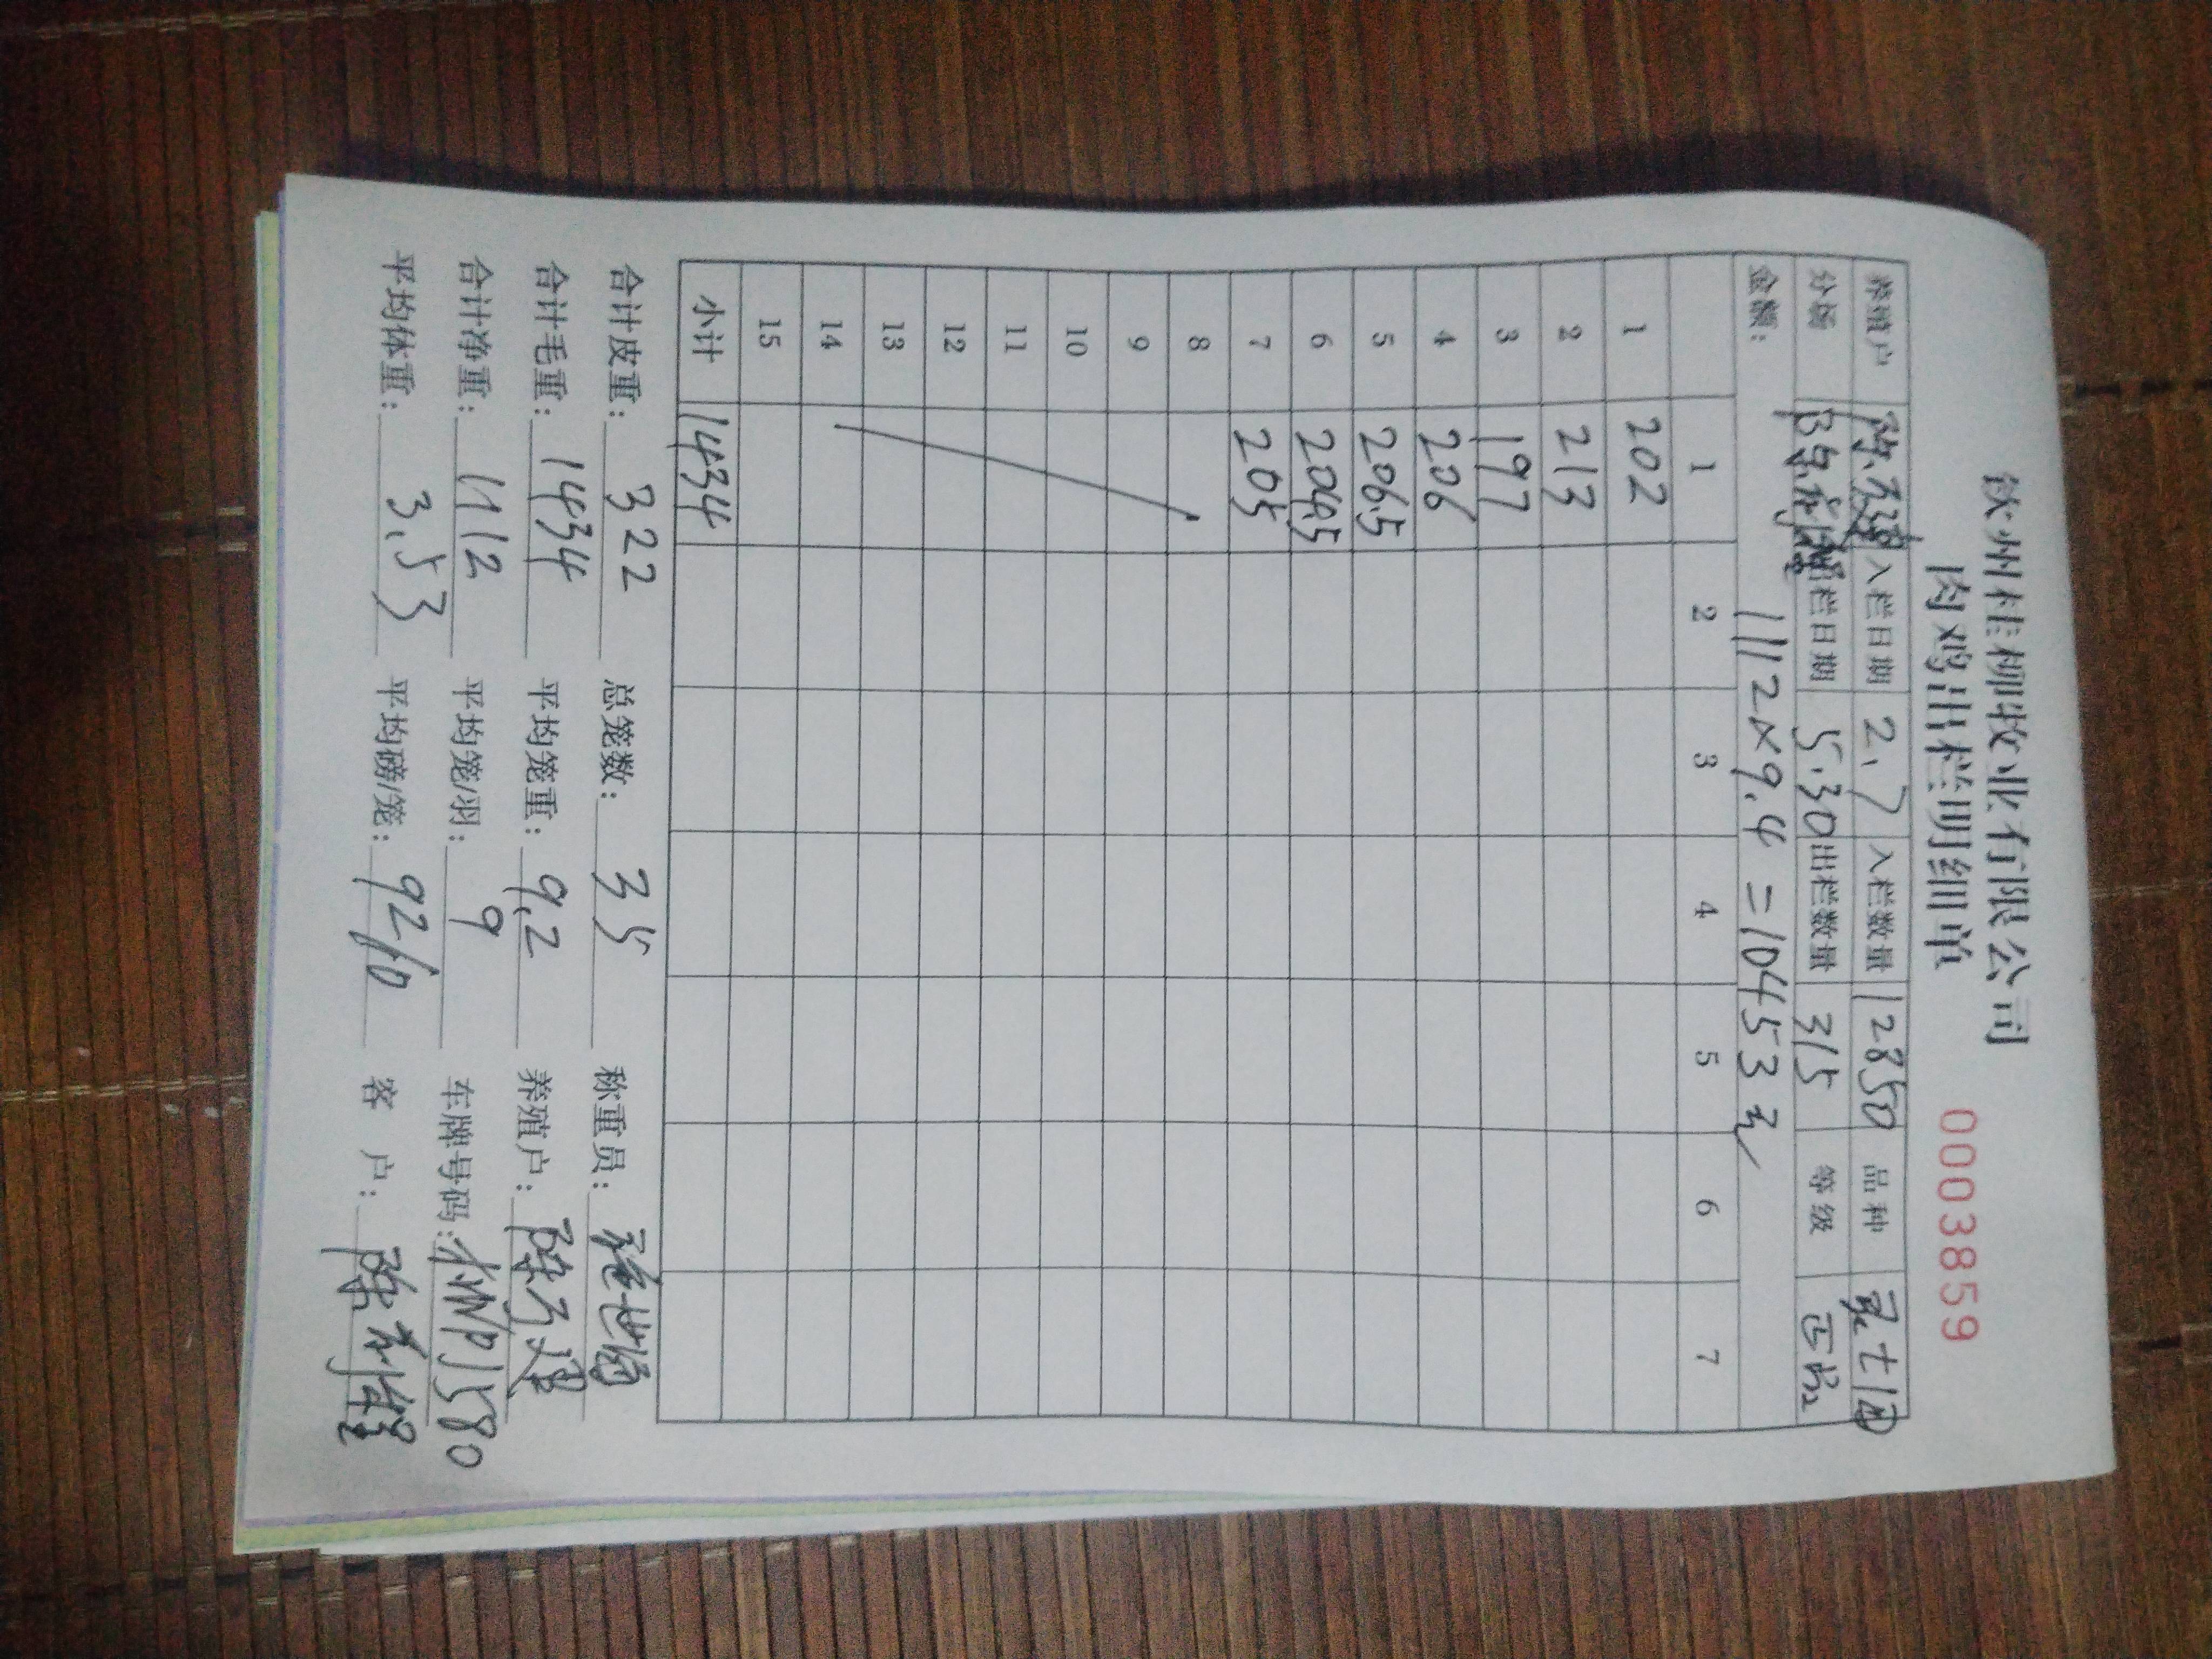 钦州桂柳牧业有限公司
肉鸡出栏明细单
0003859
养殖户 入栏日期 2.7 入栏数量 12850 品种
分场 出栏日期 5.30 出栏数量 315 等级
金额: 1112×9.4=10453元
1 2 3 4 5 6 7
1 202
2 213
3 197
4 206
5 206.5
6 204.5
7 205
8
9
10
11
12
13
14
15
小计 1434
合计皮重: 322 总笼数: 35 称重员:
合计毛重: 1434 平均笼重: 9.2 养殖户:
合计净重: 1112 平均笼/羽: 9 车牌号码:
平均体重: 3.53 平均磅/笼: 92/10 客 户: